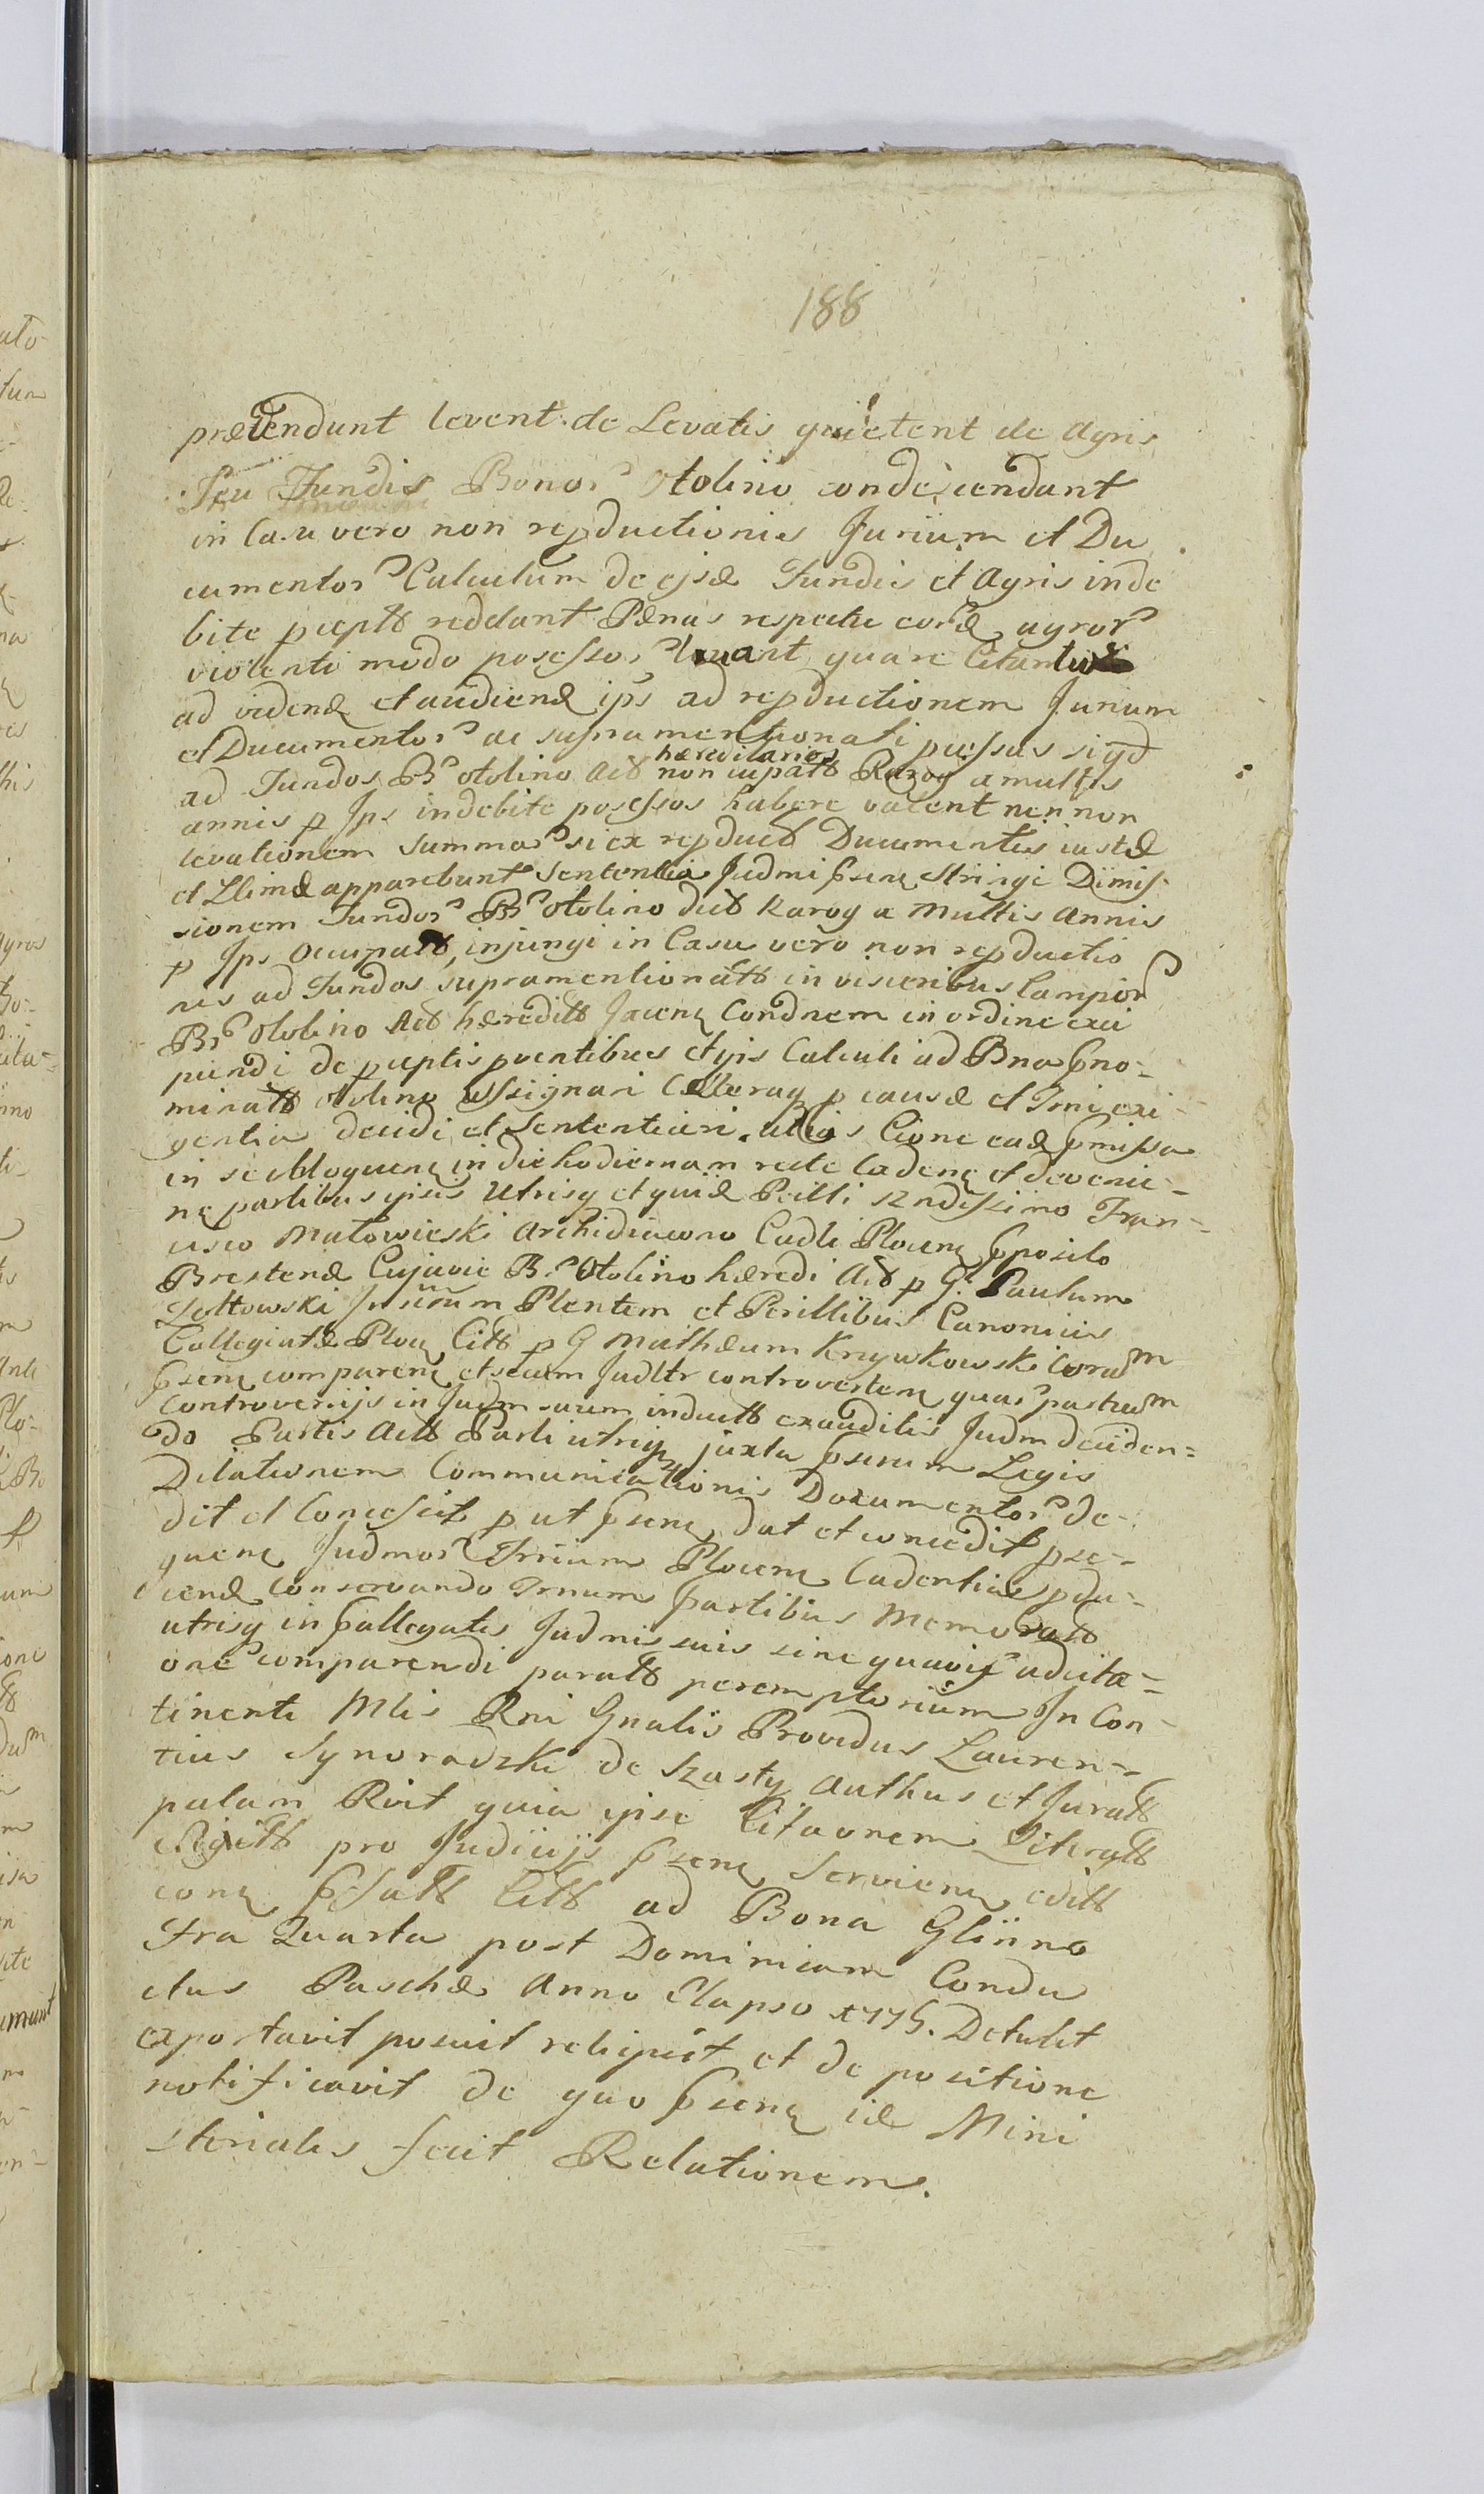 188
prætendunt levent de Levatis quietent de Agris
Seu Fundis Bonor Otolino condescendant
in Casu vero non repductionis Jurium et Du
cumentor Calculum de ejsd Fundis et Agris inde
bite pceptt reddant Pænas respectu eord agror
violenti modo posessor luant quare Citantur
ad vidend et audiend ips ad repductionem Jurium
et Ducumentor ac supramentionati pcessus siqd
hæreditarios
ad Fundos Br Otolino Act non cupatt Rarog a multis
annis p Ips indebite posessos habere valent nec non
levationem Summar si ex repduct Ducumentis iustæ
et Llimæ apparebunt Sententia Judmi psen stringi Dimis-
sionem Fundor Br Otolino dict Rarog a Multis Annis
p Ips Occupatt, injungi in Casu vero non repductio
nis ad Fundos supramentionatt in visceribus Campor
Br Otolino Act hæreditt Jacen Condnem in ordine exci
piendi de pceptis pventibus et ejis Calculi ad Bna pno-
minatt Otolino assignari Cæteraq p causæ et Trni exi-
gentia decidi et Sententiari. utius Cione ead pmissa
in se obloquen in die hodiernam recte Caden et devenie-
n partibus ipsis Utrisq et quid Perilli Rndissimo Fran-
cisco Matowieski Archidiacono Cadli Plocen pposito
Brestend Cujavie Br Otolino hæredi Act p G. Paulum
Zottowski Jn sirum Plentem et Perillibus Canonicis
Collegiatæ Ploc Citt p G Mathæum Knywkowski Coram
psen comparen et secum Judltr controverten quar partium
Controversijs in Judm suum inductt exauditis Judm deciden-
do Partis Actt Parti utriq juxta psinum Legis
Dilationem Communicationis Documentor de-
dit et Concessit put psen dat et concedit pse-
quen Judmor Trrium Plocen Cadentias pdu-
cend conservando Trnum partibus Memoratt
utrisq in pallegatis Judmis suis sine quavis adcita-
one comparendi paratt peremptorium In Con-
tinenti Mlis Rni Gnalis Providus Lauren-
tius Synoradzki de Szasty Authus et Juratt
palam Rvit quia ipse Citaonem Literatt
Sigitt pro Judiciijs psen Servien edit
con psatt Citt ad Bona Glinno
Fra Quarta post Dominicam Condu
ctus Paschæ Anno Elapso 1775. Detulit
exportavit posuit reliquit et de positione
notificavit de quo psen id Mini
sterialis fecit Relationem.